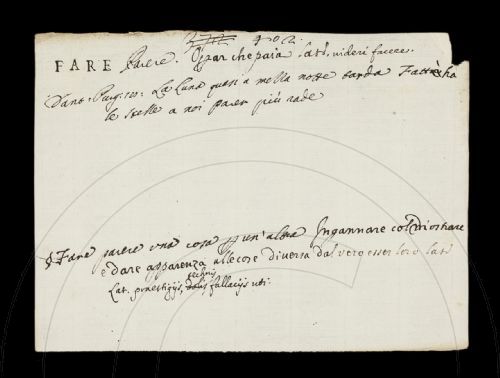 402.
FARE parere. Oprar che paia Lat. videri facere.
Dant. Purg. 180. La Luna quasi a mezza notte tarda Facea
le stelle a noi parer più rade
§ Fare parere una cosa p un'altra Ingannare col mostrare
e dare apparenza alle cose diversa dal vero esser loro Lat.
technis
Lat. praestigijs, dolis, fallacijs uti.